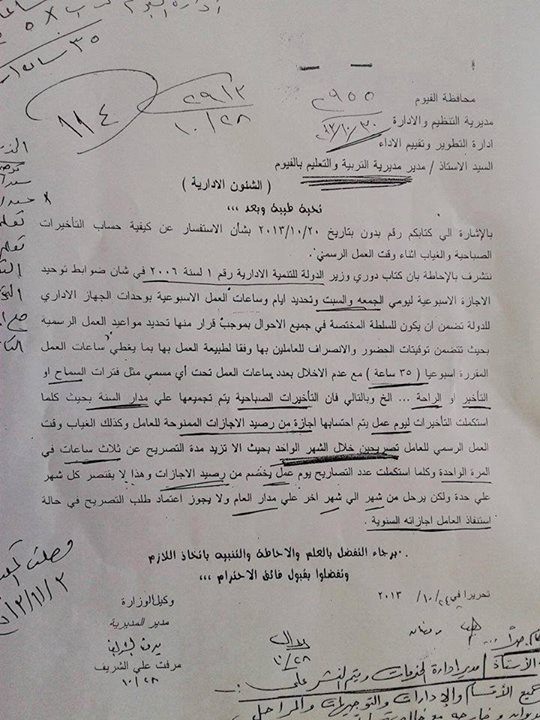 ٣٥ ساعة
١١٤
٢٩١٣
١٠/٢٨
محافظة الفيوم
٢٩٥٥
مديرية التنظيم والادارة
ادارة التطوير وتقييم الاداء
السيد الاستاذ / مدير مديرية التربية والتعليم بالفيوم
( الشئون الادارية )
تحية طيبة وبعد ،،،
بالإشارة الي كتابكم رقم بدون بتاريخ ٢٠١٣/١٠/٢٠ بشأن الاستفسار عن كيفية حساب التأخيرات
الصباحية والغياب اثناء وقت العمل الرسمي
نتشرف بالإحاطة بان كتاب دوري وزير الدولة للتنمية الادارية رقم ١ لسنة ٢٠٠٦ في شان ضوابط توحيد
الاجازة الاسبوعية ليومي الجمعه والسبت وتحديد ايام وساعات العمل الاسبوعية بوحدات الجهاز الاداري
للدولة تضمن ان يكون للسلطة المختصة في جميع الاحوال بموجب قرار منها تحديد مواعيد العمل الرسميه
بحيث تتضمن توقيتات الحضور والانصراف للعاملين بها وفقا لطبيعة العمل بها بما يغطي ساعات العمل
المقررة اسبوعيا ( ٣٥ ساعة ) مع عدم الاخلال بعدد ساعات العمل تحت أي مسمي مثل فترات السماح او
التأخير او الراحة ... الخ وبالتالي فان التأخيرات الصباحية يتم تجميعها علي مدار السنة بحيث كلما
استكملت التأخيرات ليوم عمل يتم احتسابها اجازة من رصيد الاجازات الممنوحة للعامل وكذلك الغياب وقت
العمل الرسمي للعامل تصريحين خلال الشهر الواحد بحيث الا تزيد مدة التصريح عن ثلاث ساعات في
المرة الواحدة وكلما استكملت عدد التصاريح يوم عمل يخصم من رصيد الاجازات وهذا لا يقتصر كل شهر
علي حدة ولكن يرحل من شهر الي شهر اخر علي مدار العام ولا يجوز اعتماد طلب التصريح في حالة
استنفاذ العامل اجازاته السنوية .
برجاء التفضل بالعلم والاحاطة والتنبيه باتخاذ اللازم
وتفضلوا بقبول فائق الاحترام ،،،
تحريرا في ١٠/٢٤/ ٢٠١٣
وكيل الوزارة
مدير المديرية
مرفت علي الشريف
١٠/٢٨
١٠/٢٨